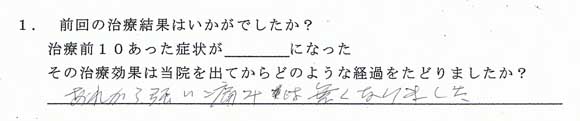 １． 前回の治療結果はいかがでしたか？
治療前１０あった症状が________になった
その治療効果は当院を出てからどのような経過をたどりましたか？
あれから強い痛みは無くなりました